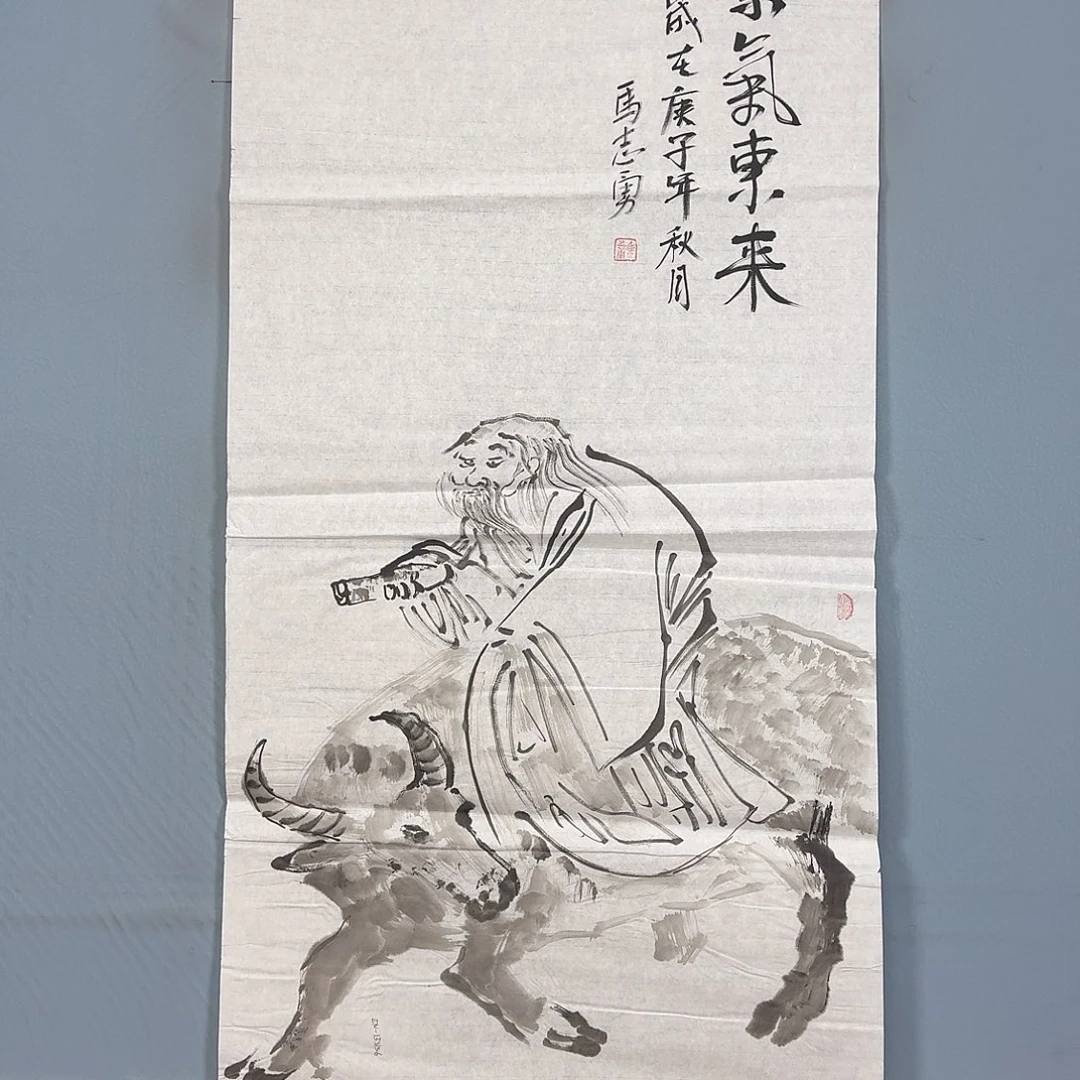 氣東来
歲在庚子年秋月
馬志勇